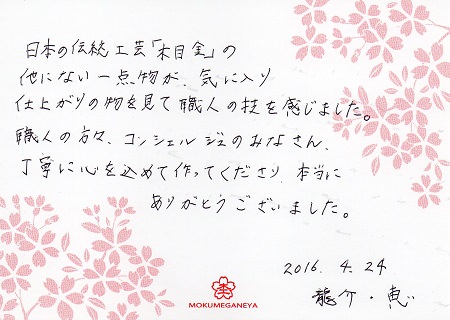 日本の伝統工芸「木目金」の
他にない一点物が、気に入り
仕上がりの物を見て職人の技を感じました。
職人の方々、コンシェルジュのみなさん、
丁寧に心を込めて作ってくださり、本当に
ありがとうございました。
2016. 4. 24
龍介・恵
MOKUMEGANEYA